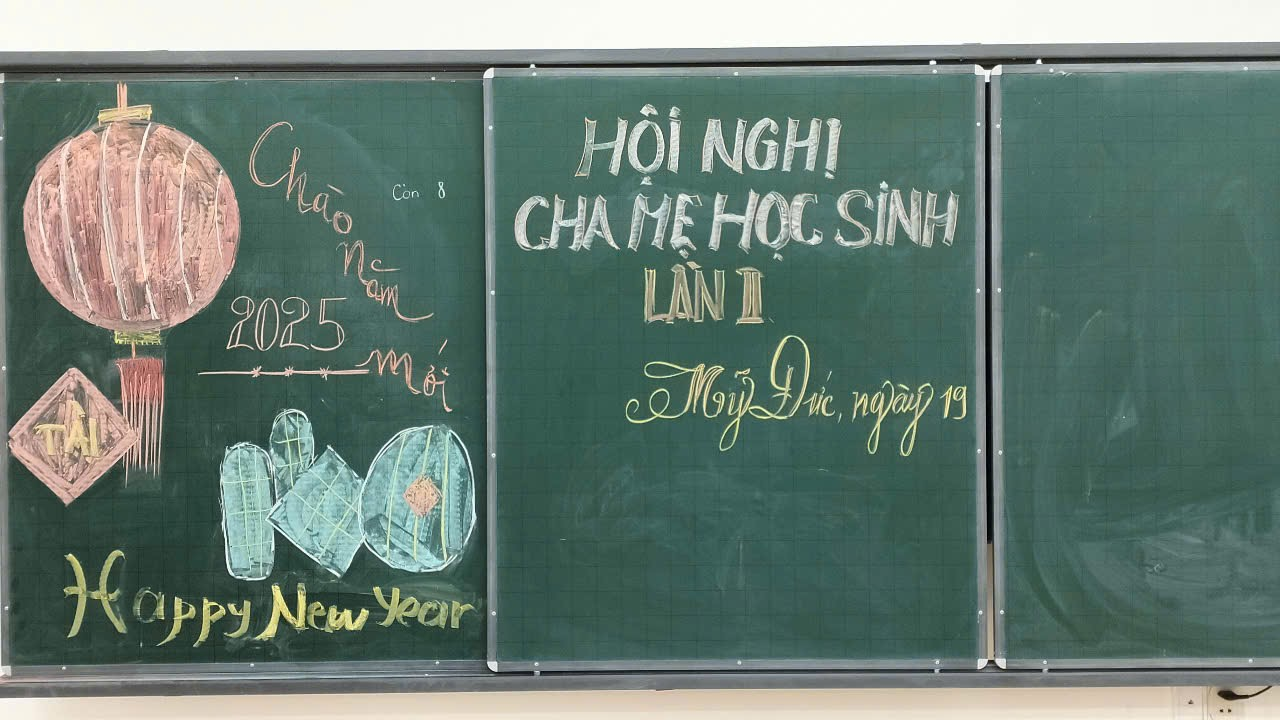 Chào
năm
2025
mới
Còn 8
TÀI
Happy New Year
HỘI NGHỊ
CHA MẸ HỌC SINH
LẦN II
Mỹ Đức, ngày 19